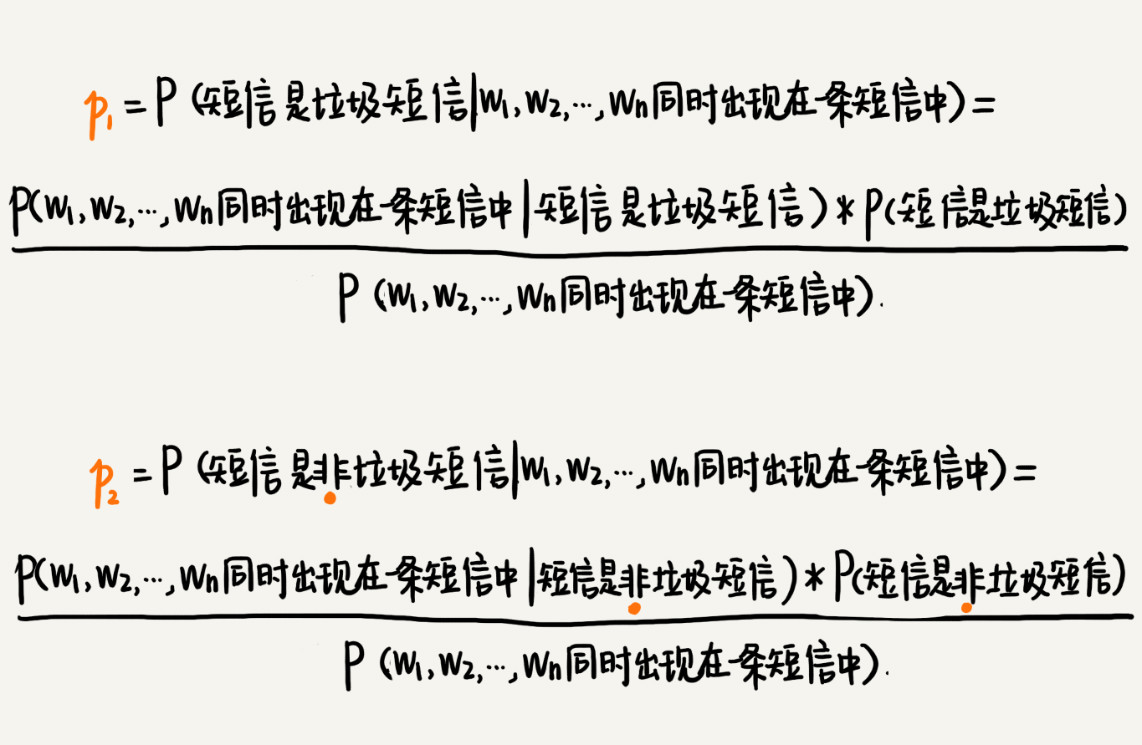 p₁ = P (短信是垃圾短信|W₁,W₂,…,Wₙ同时出现在一条短信中) =
P(W₁,W₂,…,Wₙ同时出现在一条短信中|短信是垃圾短信) * P(短信是垃圾短信)
P (W₁,W₂,…,Wₙ同时出现在一条短信中).
p₂ = P (短信是非垃圾短信|W₁,W₂,…,Wₙ同时出现在一条短信中) =
P(W₁,W₂,…,Wₙ同时出现在一条短信中|短信是非垃圾短信) * P(短信是非垃圾短信)
P (W₁,W₂,…,Wₙ同时出现在一条短信中).